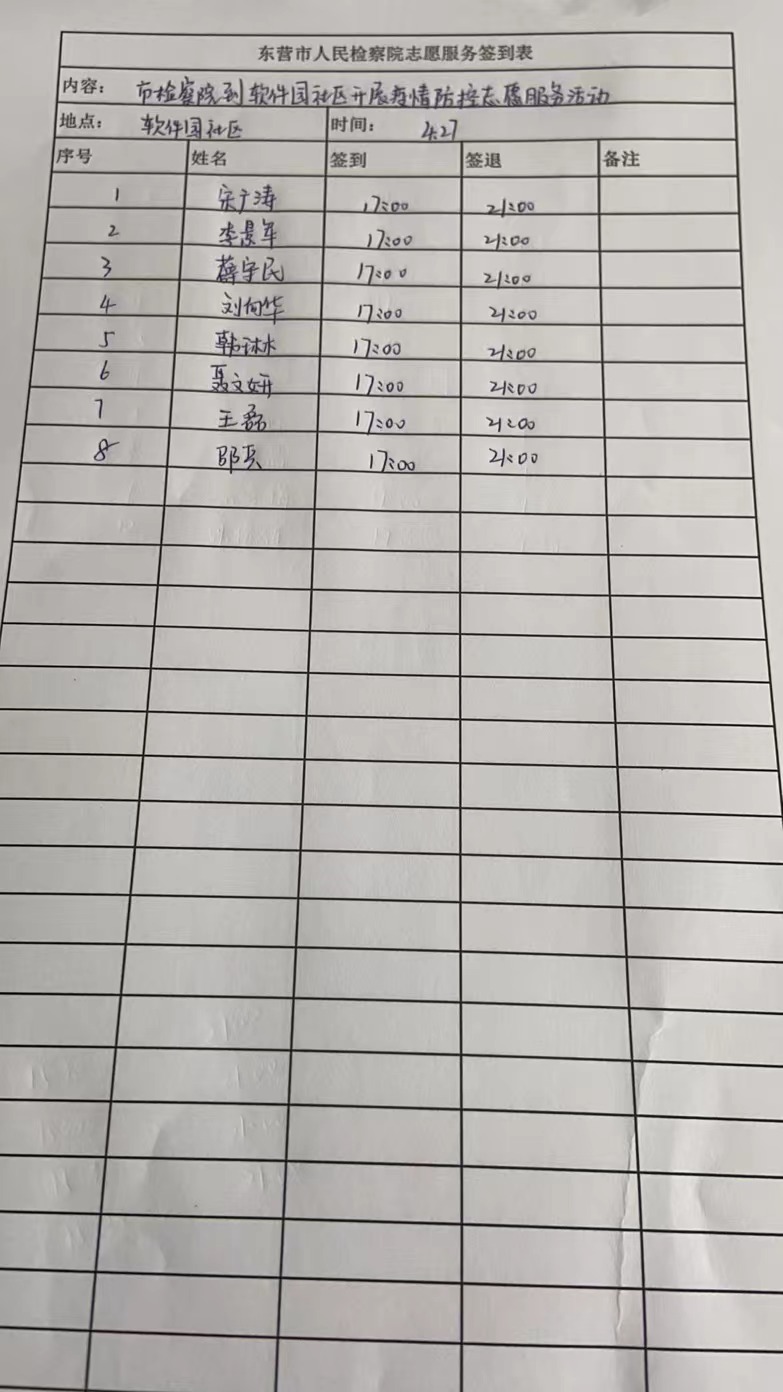 东营市人民检察院志愿服务签到表
内容： 市检察院到软件园社区开展疫情防控志愿服务活动
地点： 软件园社区 时间： 4.27
序号 姓名 签到 签退 备注
1 宋广涛 17:00 21:00
2 李景军 17:00 21:00
3 薛宇民 17:00 21:00
4 刘向华 17:00 21:00
5 韩沐水 17:00 21:00
6 聂文妍 17:00 21:00
7 王磊 17:00 21:00
8 17:00 21:00